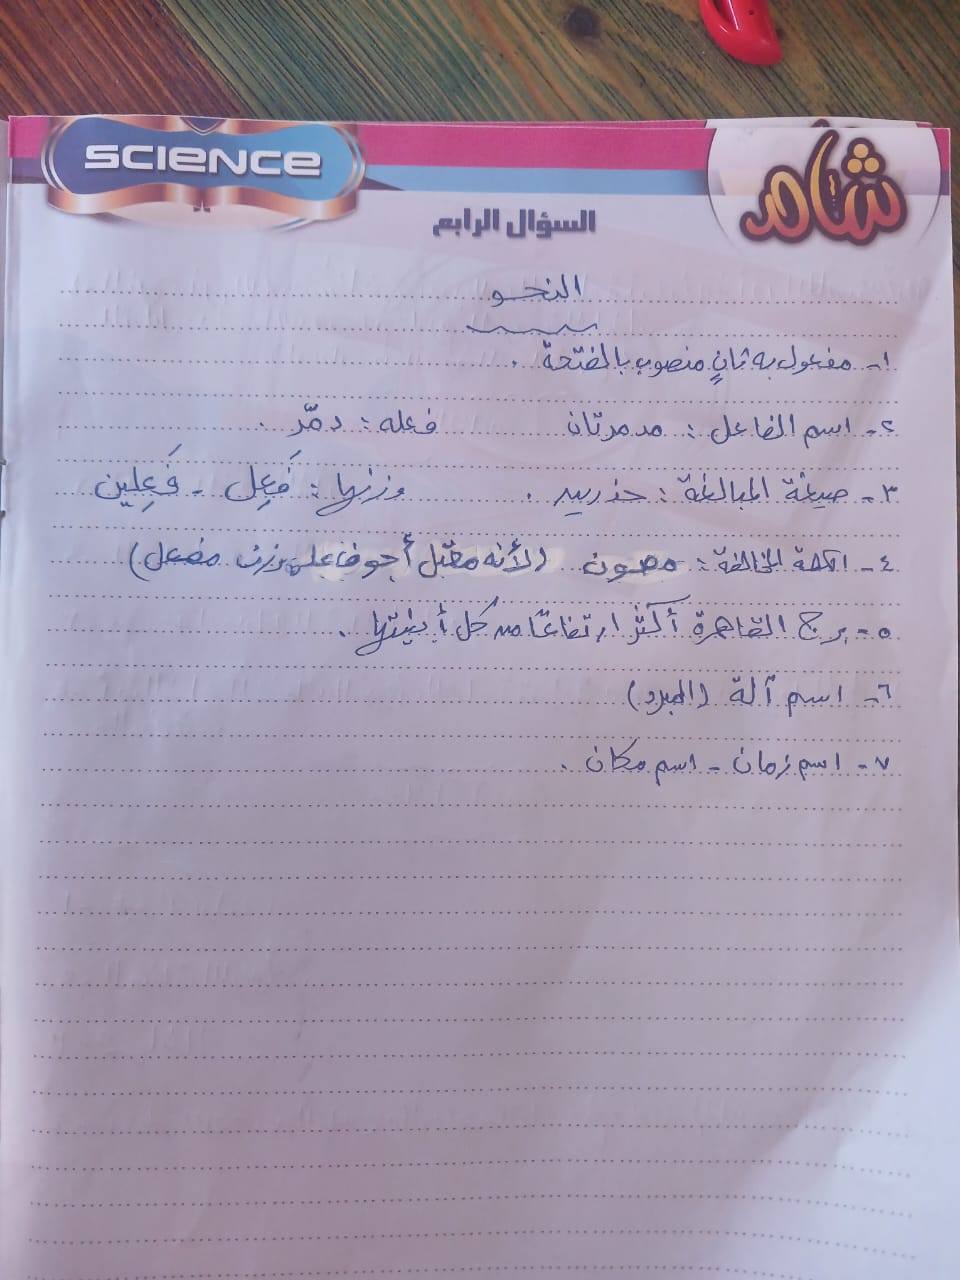 SCIENCE
شاهد
السؤال الرابع
النحو
١- مفعول به ثانٍ منصوب بالفتحة .
٢- اسم الفاعل : مدمرتان فعله : دمّر .
٣- صيغة المبالغة : حذرين . وزنها : فَعِل - فَعِلين
٤- الكلمة المخالفة : مصون (لأنه معتل أجوف على وزن مفعل)
٥- برج القاهرة أكثر ارتفاعًا من كل أبنيتها .
٦- اسم آلة (المبرد)
٧- اسم زمان - اسم مكان .